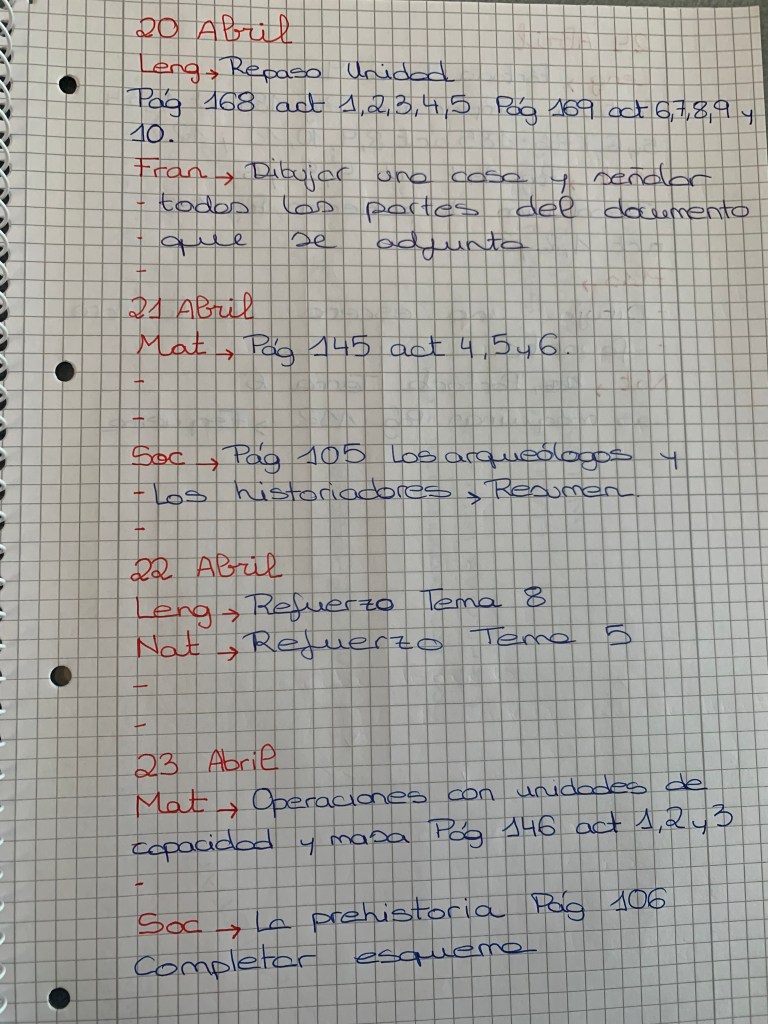 20 Abril
Leng → Repaso Unidad
Pág 168 act 1,2,3,4,5 Pág 169 act 6,7,8,9 y
10.
Fran → Dibujar una casa y señalar
- todas las partes del documento
- que se adjunta
-
21 Abril
Mat → Pág 145 act 4,5 y 6.
-
-
Soc → Pág 105 Los arqueólogos y
- Los historiadores → Resumen.
-
22 Abril
Leng → Refuerzo Tema 8
Nat → Refuerzo Tema 5
-
-
23 Abril
Mat → Operaciones con unidades de
capacidad y masa Pág 146 act 1,2 y 3
-
Soc → La prehistoria Pág 106
Completar esquema